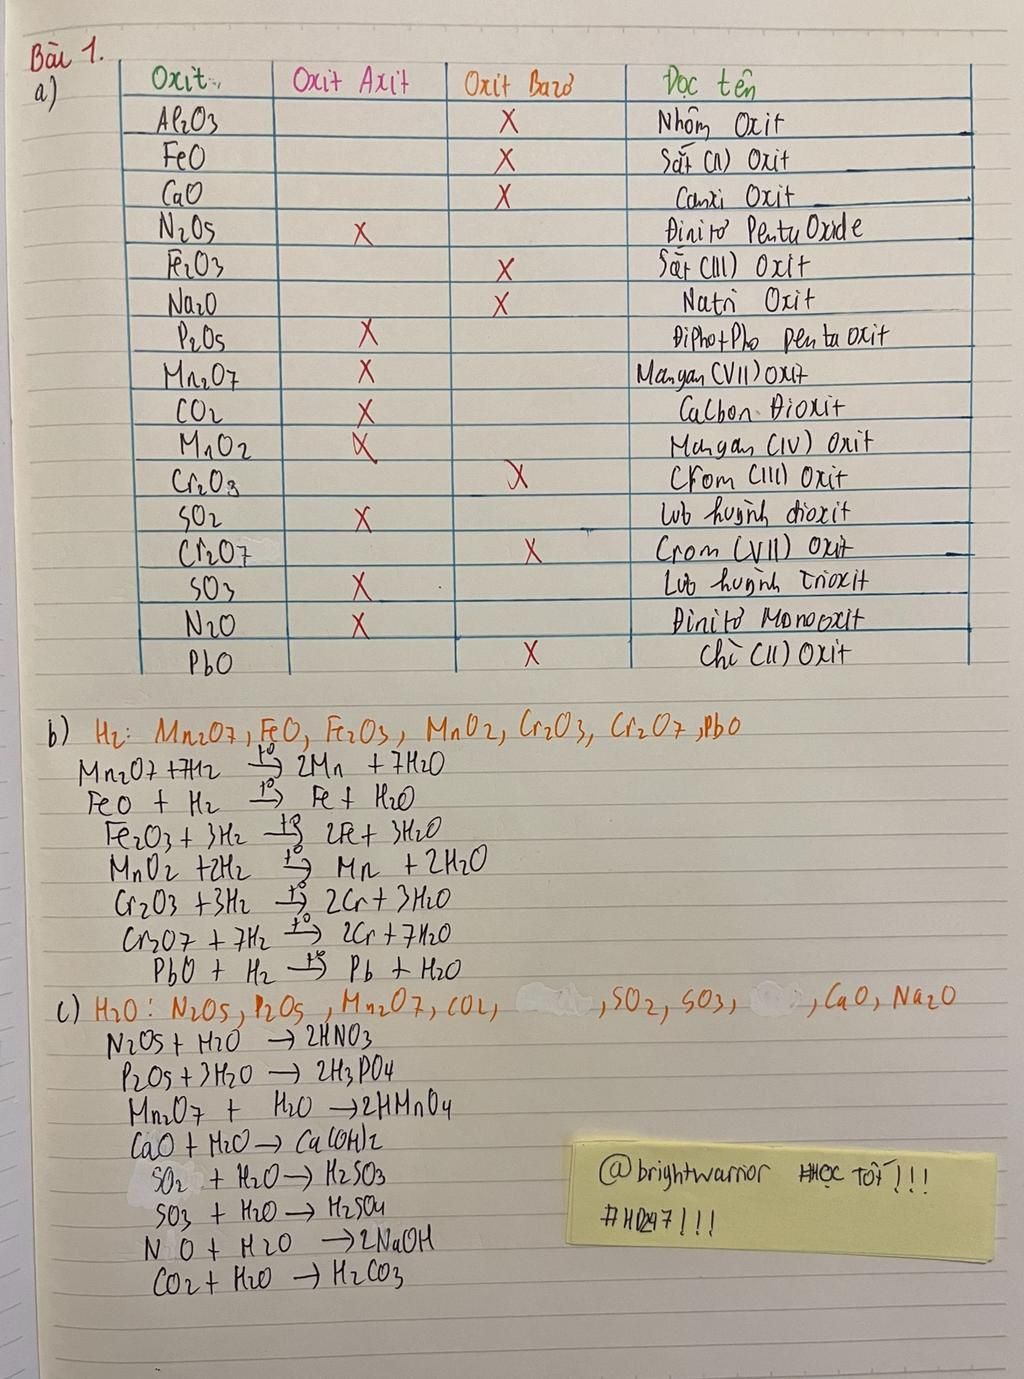 Bài 1.
a)
Oxit Oxit Axit Oxit Bazơ Đọc tên
Al2O3 X Nhôm Oxit
FeO X Sắt (II) Oxit
CaO X Canxi Oxit
N2O5 X Đinitơ Penta Oxide
Fe2O3 X Sắt (III) Oxit
Na2O X Natri Oxit
P2O5 X ĐiPhotPho penta oxit
Mn2O7 X Mangan (VII) Oxit
CO2 X Cacbon Đioxit
MnO2 X Mangan (IV) Oxit
Cr2O3 X Crom (III) Oxit
SO2 X Lưu huỳnh đioxit
Cr2O7 X Crom (VII) Oxit
SO3 X Lưu huỳnh Trioxit
N2O X Đinitơ Monooxit
PbO X Chì (II) Oxit
b) H2: Mn2O7, FeO, Fe2O3, MnO2, Cr2O3, Cr2O7, PbO
Mn2O7 + 7H2 t° → 2Mn + 7H2O
FeO + H2 t° → Fe + H2O
Fe2O3 + 3H2 t° → 2Fe + 3H2O
MnO2 + 2H2 t° → Mn + 2H2O
Cr2O3 + 3H2 t° → 2Cr + 3H2O
Cr2O7 + 7H2 t° → 2Cr + 7H2O
PbO + H2 t° → Pb + H2O
c) H2O: N2O5, P2O5, Mn2O7, CO2, , SO2, SO3, , CaO, Na2O
N2O5 + H2O → 2HNO3
P2O5 + 3H2O → 2H3PO4
Mn2O7 + H2O → 2HMnO4
CaO + H2O → Ca(OH)2
SO2 + H2O → H2SO3
SO3 + H2O → H2SO4
N O + H2O → 2NaOH
CO2 + H2O → H2CO3
@brightwarrior #HỌC TỐT!!!
#HD247!!!